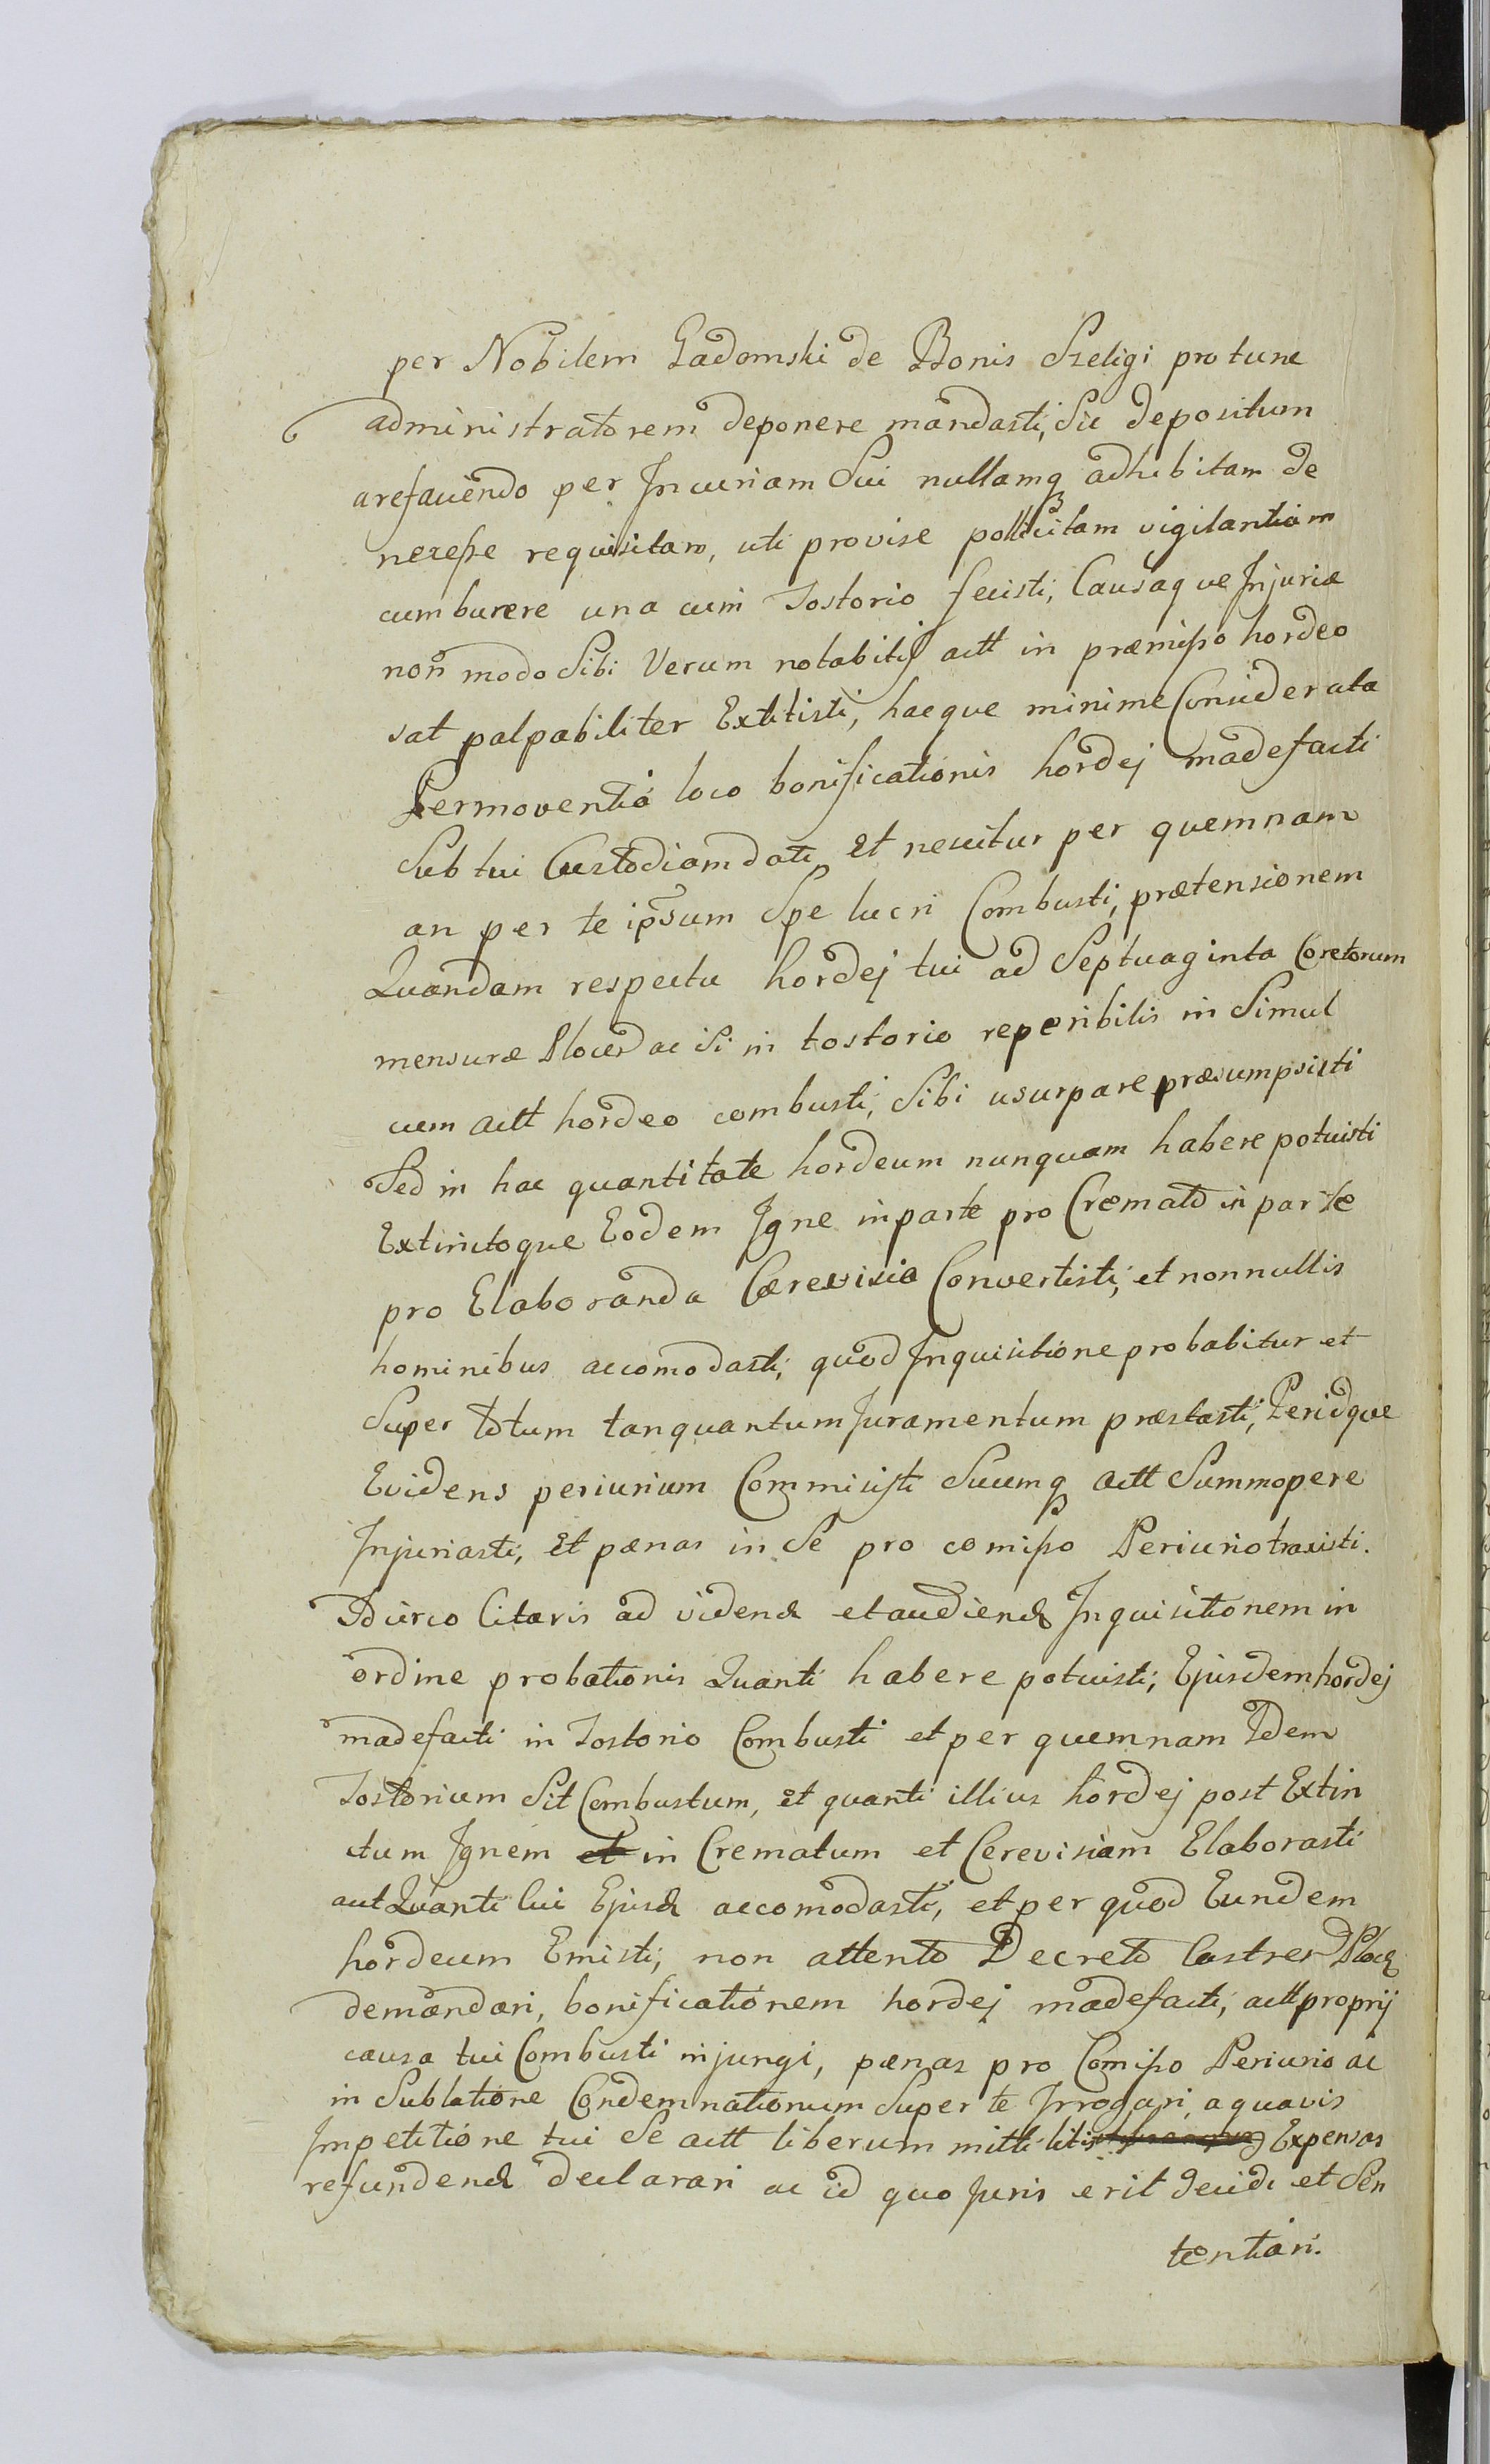 per Nobilem Gadomski de Bonis Szeligi pro tunc
administratorem deponere mandasti, Sic depositum
arefaciendo per Incuriam Sui nullamq adhibitam de
necesse requisitam, uti provise pollicitam vigilantiam
cumburere una cum Tostorio fecisti, Causaque Injuriæ
non modo Sibi Verum notabilis actt in præmisso hordeo
sat palpabiliter Extitisti, hacque minime Considerata
Permoventia loco bonificationis hordej madefacti
Sub tui Custodiam dati, et nescitur per quemnam
an per te ipsum Spe lucri Combusti, prætensionem
Quandam respectu hordej tui ad Septuaginta Coretorum
mensuræ Plocen ac Si in tostorio reperibilis in Simul
cum actt hordeo combusti, Sibi usurpare præsumpsisti
Sed in hac quantitate hordeum nunquam habere potuisti
Extinctoque Eodem Igne in parte pro Cremato in parte
pro Elaboranda Cærevisia Convertisti, et nonnullis
hominibus accomodasti, quod Inquisitione probabitur et
Super totum tanquantum Juramentum præstasti, Peridque
Evidens periurium Commisisti Suumq actt Summopere
Injuriasti, et pænas in Se pro comisso Periurio traxisti.
Idcirco Citaris ad vidend et audiend Inquisitionem in
ordine probationis Quanti habere potuisti, Ejusdem hordej
madefacti in Tostorio Combusti et per quemnam Idem
Tostorium Sit Combustum, et quanti illius hordej post Extin
ctum Ignem et in Crematum et Cerevisiam Elaborasti
aut Quanti Cui Ejusd accomodasti, et per quod Eundem
hordeum Emisti, non attento Decreto Castren Plocen
demandari, bonificationem hordej madefacti, actt proprij
causa tui Combusti injungi, pænas pro Comisso Periurio ac
in Sublatione Condemnationum Super te Irrogari, a quavis
Impetitione tui Se actt liberum mitti litis Expensas
refundend declarari ac id quo Juris erit decidi et Sen
tentiari.